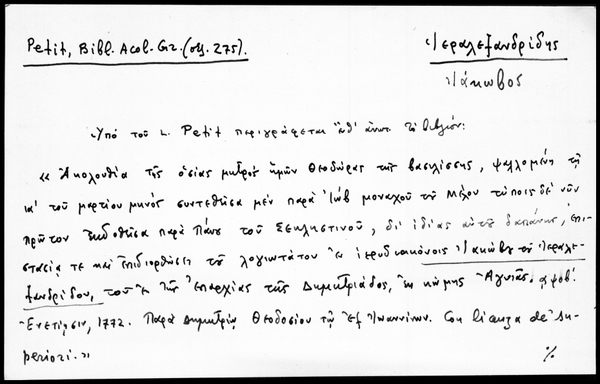 Petit, Bibl. Acol. Gr. (σελ. 275).
Ἱεραλεξανδρίδης
Ἰάκωβος
Ὑπὸ τοῦ L. Petit περιγράφεται τὸ βιβλίον:
« Ἀκολουθία τῆς ὁσίας μητρὸς ἡμῶν Θεοδώρας τῆς βασιλίσσης, ψαλλομένη τῇ
ια' τοῦ μαρτίου μηνὸς συντεθεῖσα μὲν παρὰ Ἰὼβ μοναχοῦ τοῦ Μέλου τύποις δὲ νῦν
πρῶτον ἐκδοθεῖσα παρὰ Πάνου τοῦ Σεκληστινοῦ, δι' ἰδίας αὐτοῦ δαπάνης, ἐπι-
στασίᾳ τε καὶ ἐπιδιορθώσει τοῦ λογιωτάτου ἐν ἱεροδιακόνοις Ἰακώβου τοῦ Ἱεραλε-
ξανδρίδου, τοῦ ἐκ τῆς ἐπαρχίας τῆς Δημητριάδος, ἐκ κώμης Ἀγυιᾶς, αψοβ'.
Ἐνετίῃσιν, 1772. Παρὰ Δημητρίῳ Θεοδοσίου τῷ ἐξ Ἰωαννίνων. Con licenza de' Su-
periori. »
%